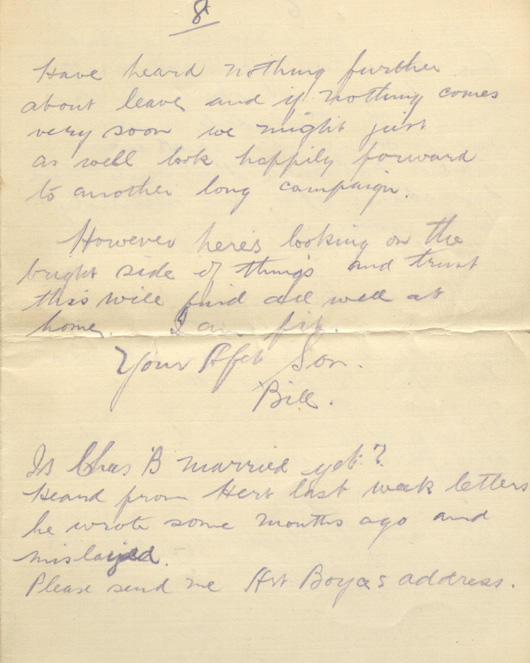 8
Have heard nothing further
about leave and if nothing comes
very soon we might just
as well look happily forward
to another long campaign.
However here's looking on the
bright side of things and trust
this will find all well at
home. I am fit.
Your Afct Son.
Bill.
Is Chas B married yet?
Heard from Herb last week letters
he wrote some months ago and
mislayed.
Please send me Art address.